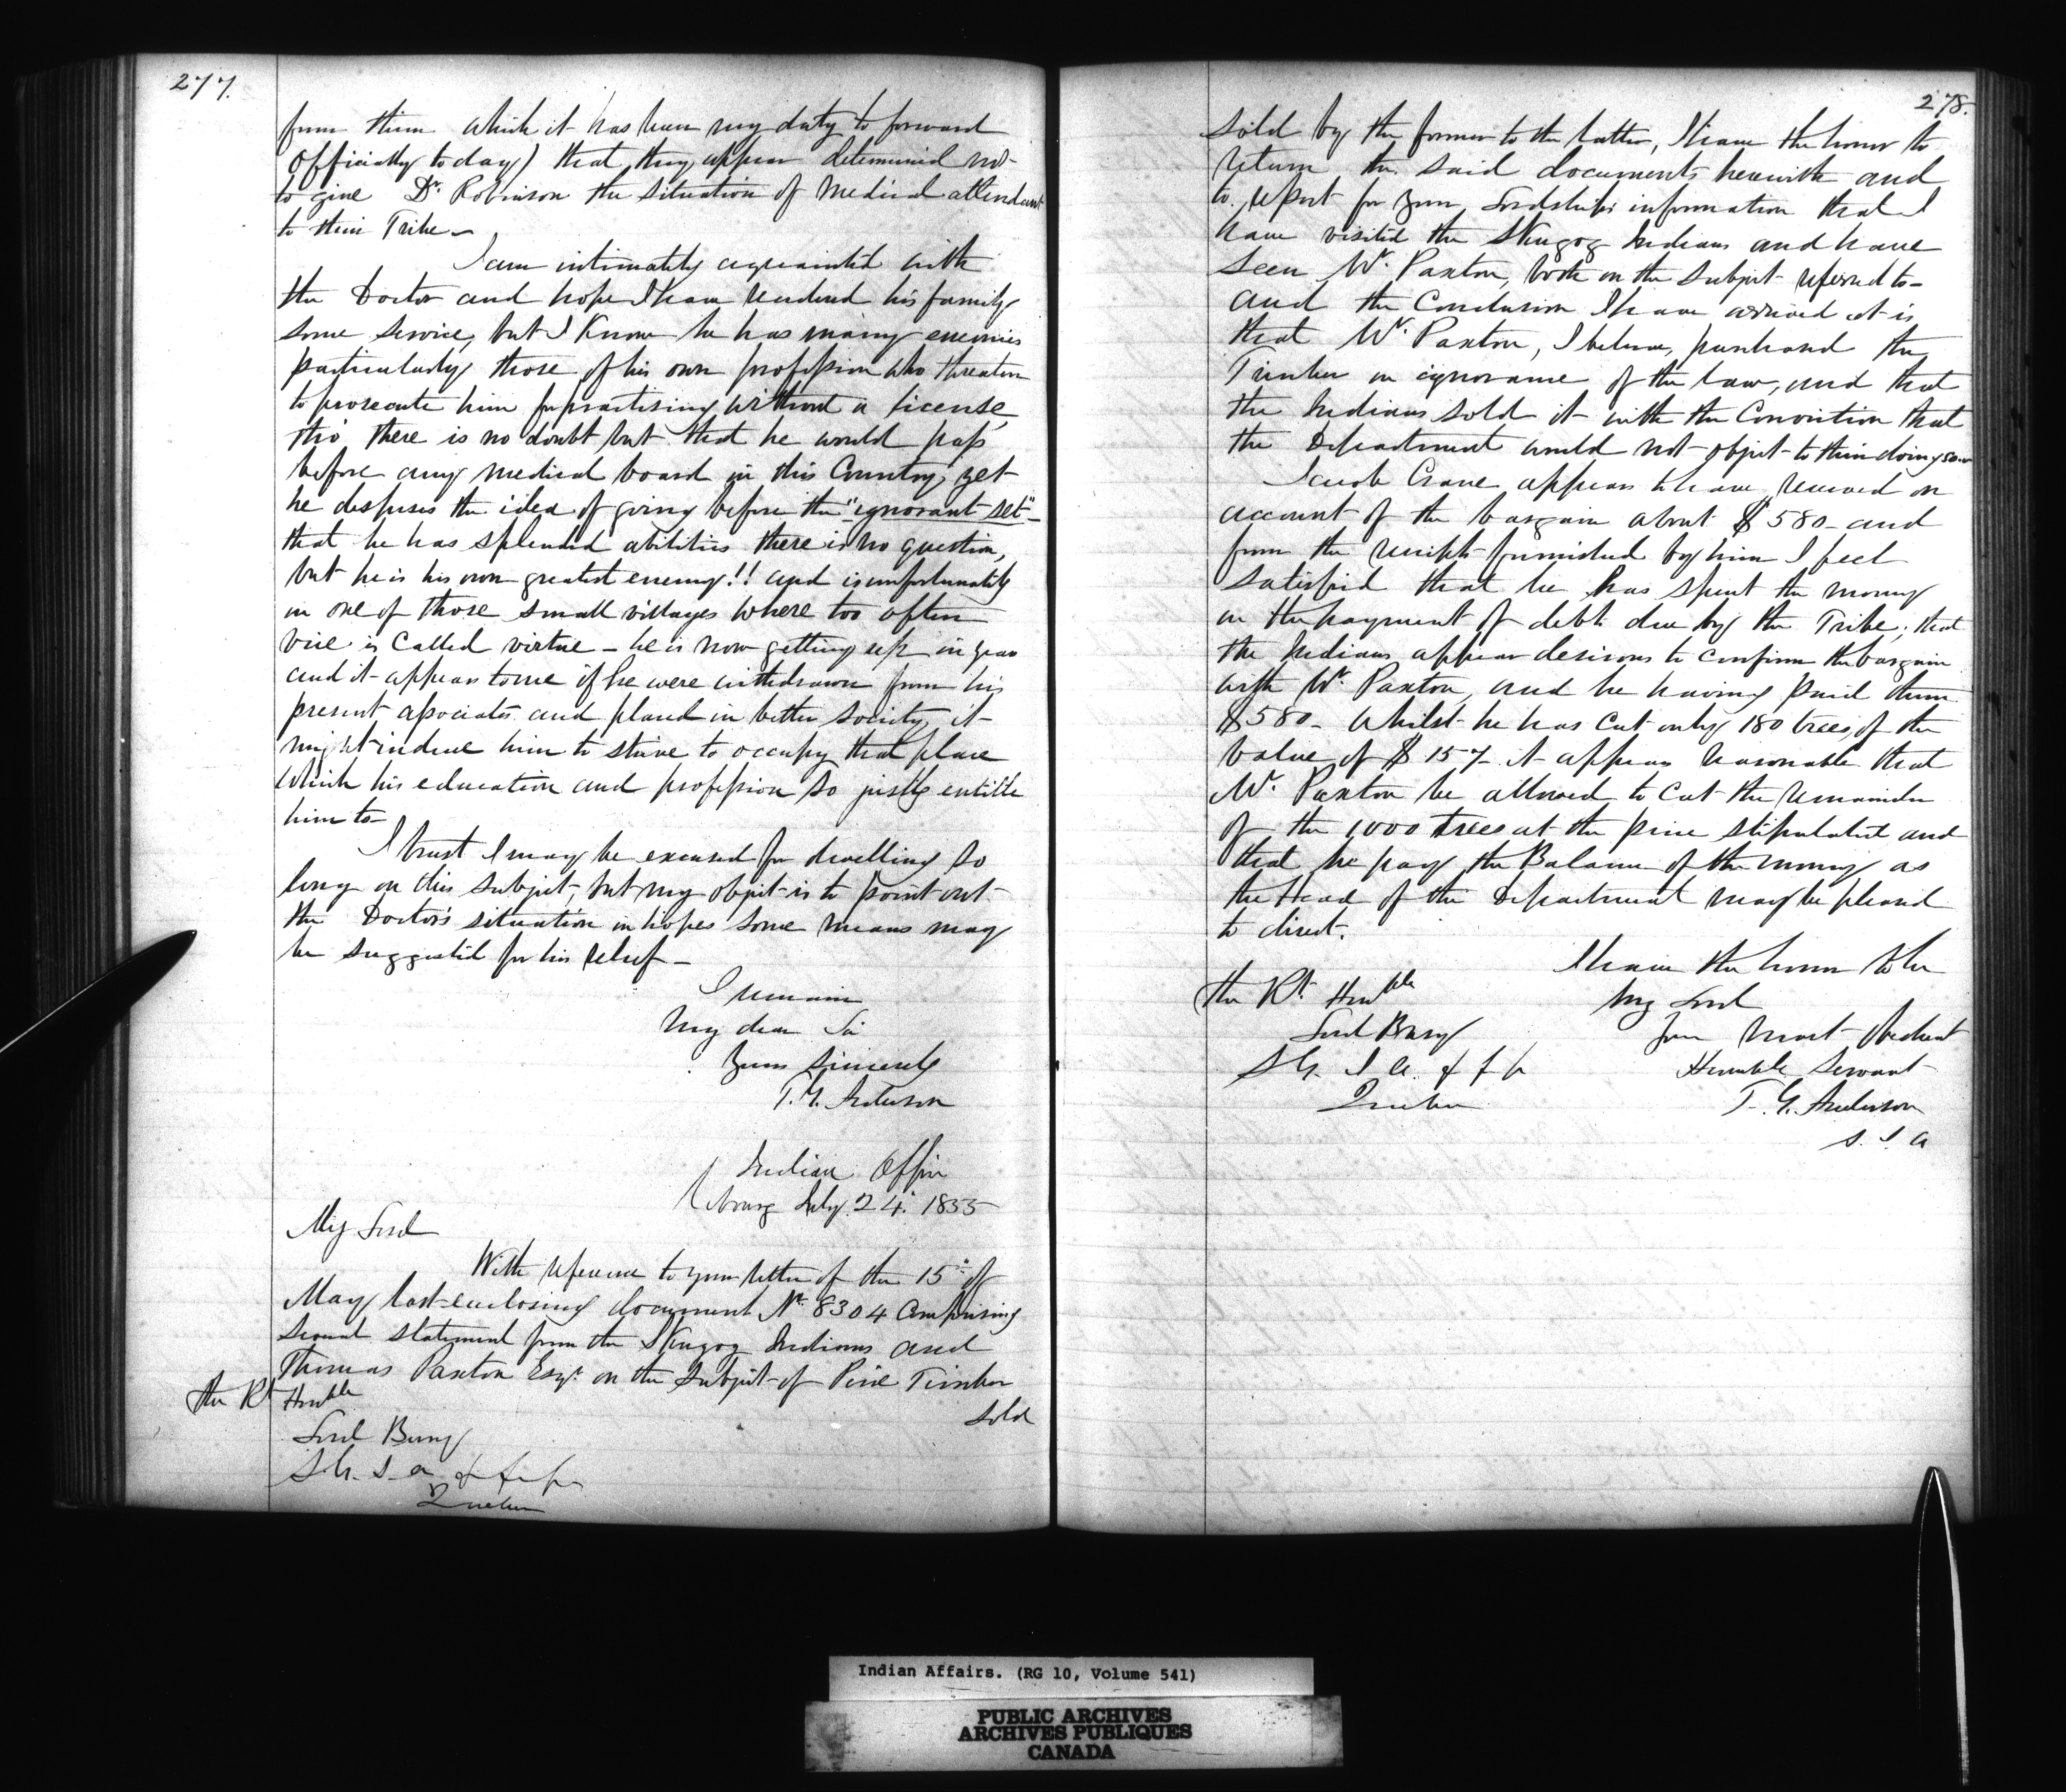 277.
from them which it has been my duty to forward
officially today) that they appear determined not
to give Dr. Robinson the situation of Medical attendant
to their Tribe –
I am intimately acquainted with
the Doctor and hope I have rendered his family
some service, but I Know he has many enemies
particularly those of his own profession who threaten
to prosecute him for practising without a license
tho' there is no doubt but that he would pass
before any medical board in this Country, yet
he despises the idea of going before the "ignorant set" –
that he has splendid abilities there is no question,
but he is his own greatest enemy!! and is unfortunately
in one of those small villages where too often
vice is Called virtue – he is now getting up in years
and it appears to me if he were withdrawn from his
present associates and placed in better society, it
might induce him to strive to occupy that place
which his education and profession so justly entitle
him to –
I trust I may be excused for dwelling so
long on this subject, but my object is to point out
the Doctor's situation in hopes some means may
be suggested for his relief –
I remain
My dear Sir
Yours Sincerely
T. G. Anderson
Indian Office
Cobourg July 24. 1855
My Lord
With reference to your letter of the 15" of
May last enclosing document No. 8304 Comprising
several statement from the Skugog Indians and
Thomas Paxton Esqr. on the Subject of Pine Timber
sold
The Rt Honble
Lord Bury
S. G. I. A. &
Quebec
278.
sold by the former to the latter, I have the honor to
return the said documents herewith and
to report for your Lordship's information that I
have visited the Skugog Indians and have
seen Mr. Paxton, both on the subject referred to –
and the Conclusion I have arrived at is
that Mr. Paxton, I believe, purchased the
Timber in ignorance of the law, and that
the Indians sold it with the Conviction that
the Department would not object to their doing so –
Jacob Crane appears to have received on
account of the bargain about $580 – and
from the receipts furnished by him I feel
satisfied that he has spent the money
in the payment of debts due by the Tribe; that
the Indians appear desirous to confirm the bargain
with Mr. Paxton, and he having paid them
$580 – whilst he has cut only 180 trees, of the
value of $157 – it appears reasonable that
Mr. Paxton be allowed to cut the remainder
of the 1000 trees at the price stipulated and
that he pay the Balance of the money as
the Head of the Department may be pleased
to direct.
I have the honor to be
My Lord
Your Most Obedient
Humble Servant
T. G. Anderson
S. I. A
The Rt Honble
Lord Bury
S. G. I. A. &
Quebec
Indian Affairs. (RG 10, Volume 541)
PUBLIC ARCHIVES
ARCHIVES PUBLIQUES
CANADA